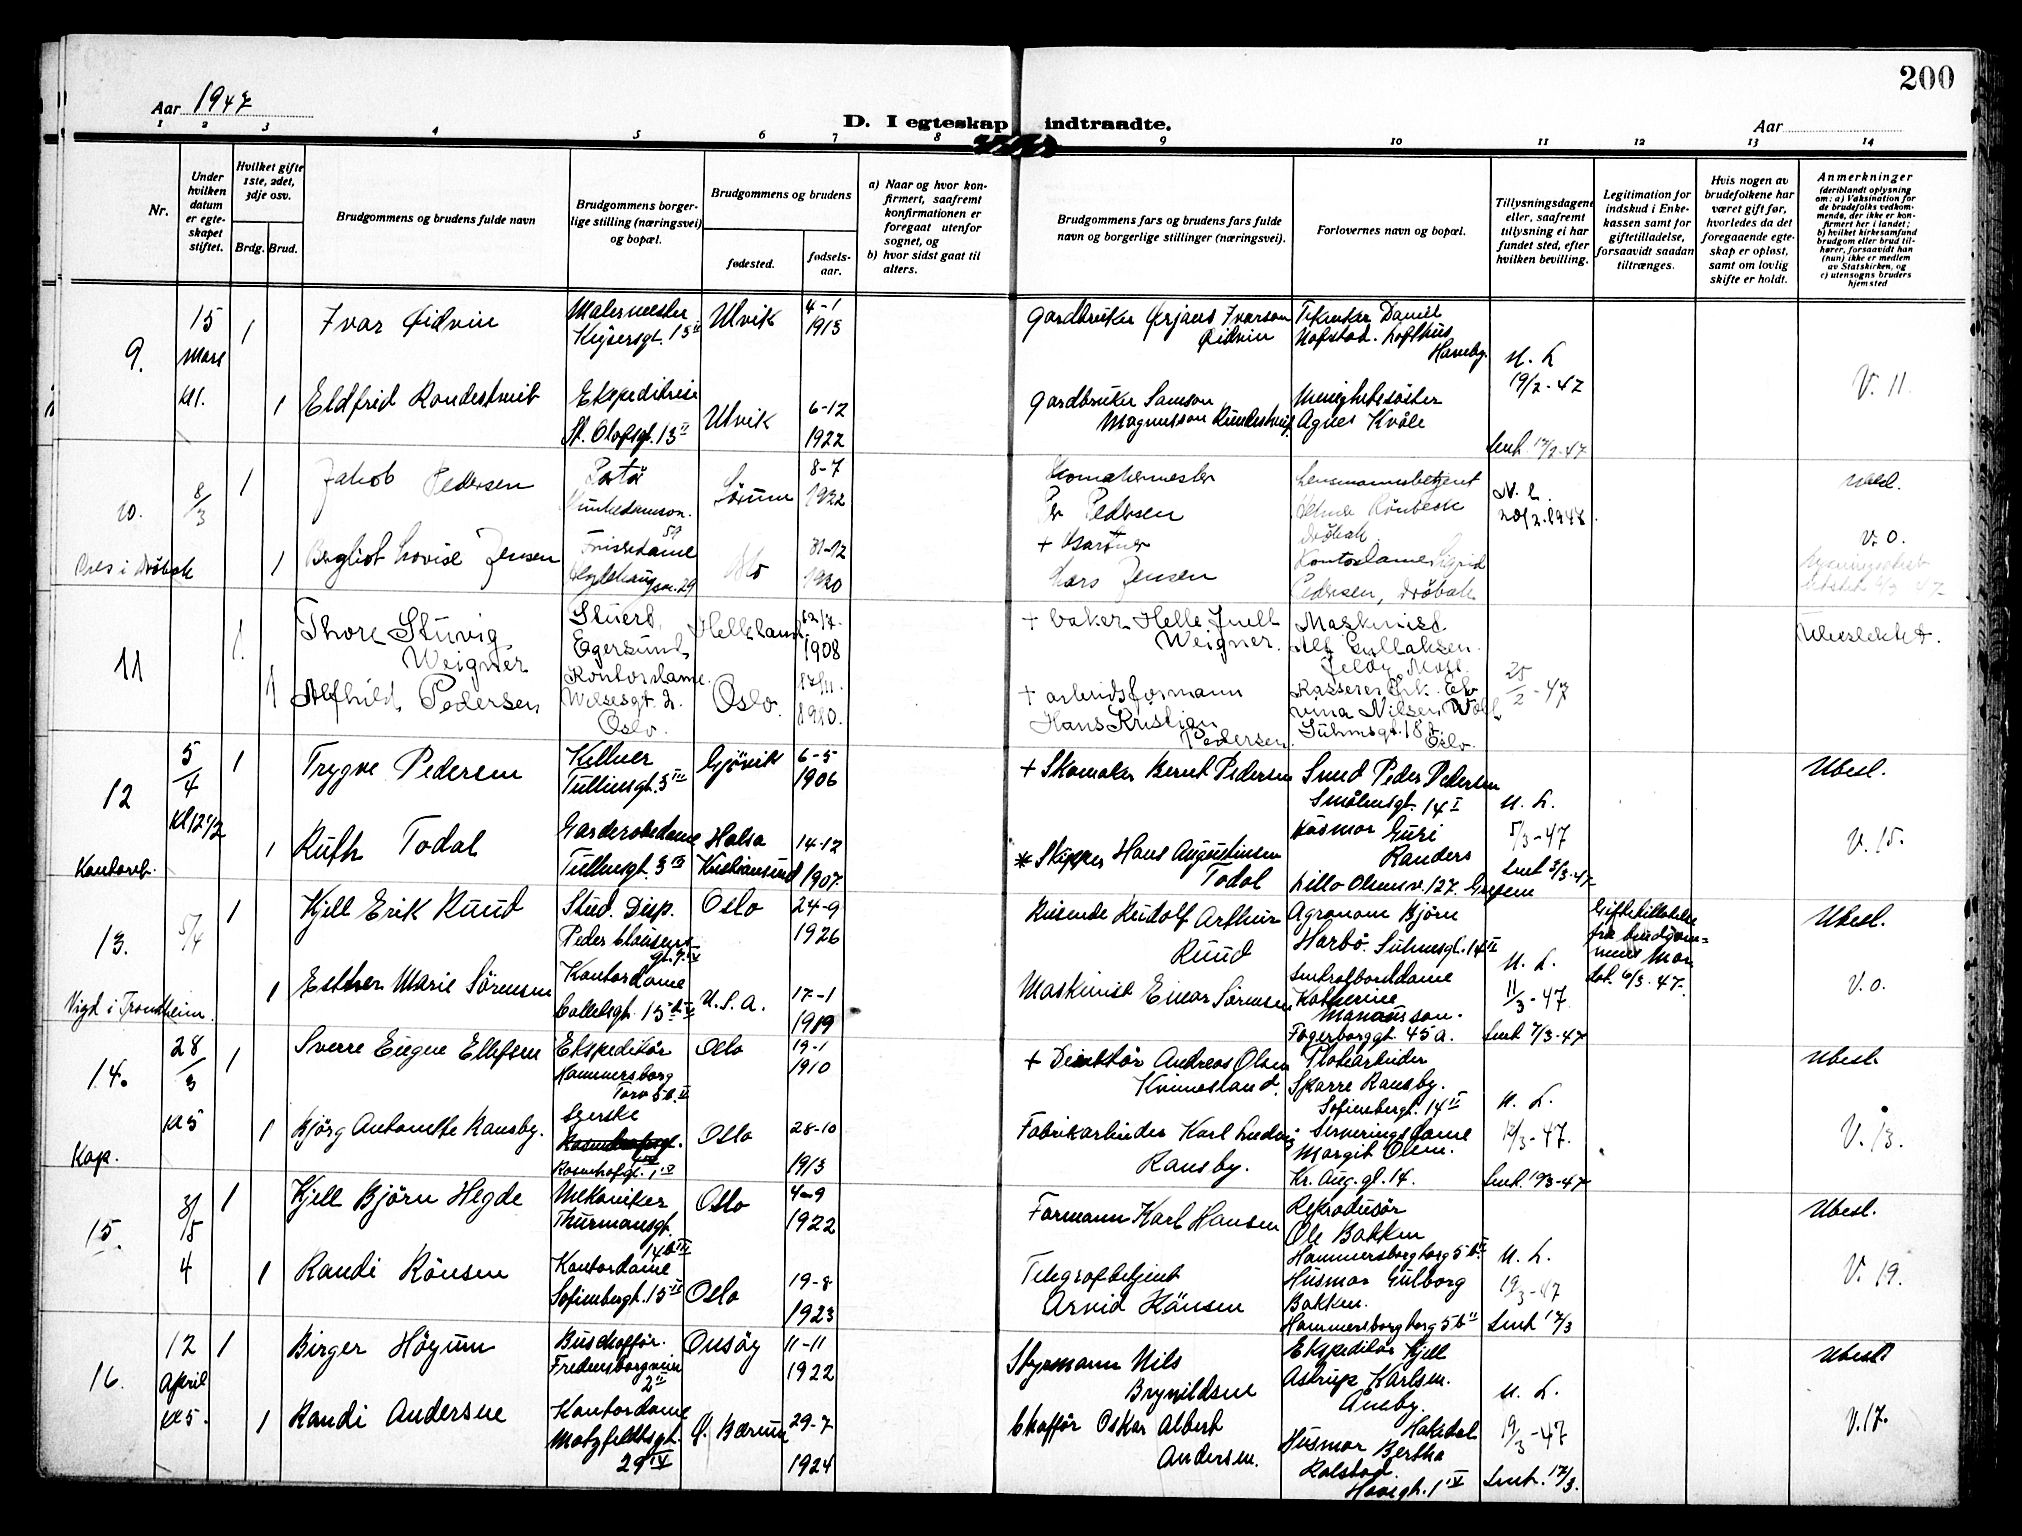 200
Aar 1947
D. I egteskap indtraadte.
Aar
1 2 3 4 5 6 7 8 9 10 11 12 13 14
Nr.
Under hvilken datum er egteskapet stiftet.
Hvilket gifte 1ste, 2det, 3dje osv.
Brdg. Brud.
Brudgommens og brudens fulde navn
Brudgommens borgerlige stilling (næringsvei) og bopæl.
Brudgommens og brudens
fødested.
fødselsaar.
a) Naar og hvor konfirmert, saafremt konfirmationen er foregaat utenfor sognet, og
b) hvor sidst gaat til alters.
Brudgommens fars og brudens fars fulde navn og borgerlige stillinger (næringsvei).
Forlovernes navn og bopæl.
Tillysningsdagene eller, saafremt tillysning ei har fundet sted, efter hvilken bevilling.
Legitimation for indskud i Enkekassen samt for giftetilladelse, forsaavidt saadan tiltrænges.
Hvis nogen av brudefolkene har været gift før, hvorledes da det foregaaende egteskap er opløst, samt om lovlig skifte er holdt.
Anmerkninger
(deriblandt oplysning om: a) Vaksination for de brudefolks vedkommende, der ikke er konfirmert her i landet; b) hvilket kirkesamfund brudgom eller brud tilhører, forsaavidt han (hun) ikke er medlem av Statskirken, og c) utensogns bruders hjemsted
9. 15 Mars kl 1.
1 Ivar Øidvin Malermester Keysersgt. 13 II Ulvik 4-1 1913
gardbruker Ørjans Ivarson Øidvin
Daniel Hofstad. Lofthus Haveby.
1 Eldfrid Rondestveit Ekspeditrise St. Olafsgt. 13 II Ulvik 6-12 1922
gardbruker Samson Magnusson Rondestveit
Menighetssøster Agnes Kvåle
N. L. 19/2-47
V. 11.
10. 8/3
1 Jakob Pedersen Sørum 8-7 1922
Per Pedersen
Lensmannsbetjent Rønbeck Drøbak
N. L. 20/2.1948.
Ubesl.
1 Bergliot Lovise Jensen Frisørdame Oslo 31-12 1920
+ Gartner Lars Jensen
Kontordame Sigrid Pedersen, Drøbak
V. 0.
Vies i Drøbak
11
1. Thore Stuvig Weigner Stuert, Egersund, Helleland 1908
+ baker Helle Juell Weigner.
Maskinist Alf Gullaksen. Jeløy, Moss.
Ubeslektet.
1 Alfhild Pedersen Kontordame. Wessesgt. 2. Oslo. Oslo.
+ arbeidsformann Hans Kristian Pedersen.
Nilsen Suhmsgt. 18 Oslo
25/2-47
12 5/4 Kl 12 1/2
1 Trygve Pedersen Kelner Tullinsgt. 3 III Gjøvik 6-5 1906
+ Skomaker Bernt Pedersen
Smed Peder Pedersen Smålensgt. 14 I
Ubesl.
1 Ruth Todal Garderobedame Tullinsgt. 3 III Halsa Kristiansund 14-12 1907
* Skipper Hans Augustinsen Todal
Husmor Guri Randers Lillo Olsensv. 127. Grefsen
N. L. 5/3-47
V. 15.
Kontoret.
13. 5/4
1 Kjell Erik Ruud Stud. Disp. Peder Clausens gt. Oslo 24-9 1926
Reisende Rudolf Arthur Ruud
Agronom Bjørn Harbö. Suhmsgt. 14 II
Giftetillatelse fra brudgommens Mor dat. 6/3.47.
Ubesl.
1 Esther Marie Sörensen Kontordame Colletsgt. U.S.A. 17-1 1919
Maskinist Einar Sörensen
Sentralborddame Katherine Fagerborggt. 45a.
N. L. 11/3-47. Innt 7/3-47
V. 0.
Vigd i Trondheim
14. 28/3 Kl 5
1 Sverre Eugne Ellefsen Ekspeditör Hammersborg Torv 5b. II Oslo 19-1 1910
+ Direktör Andreas Olsen Kvinnesland.
Platearbeider Sparre Ransby. Sofienbergt. 14 II
Ubesl.
1 Bjørg Antonette Ransby. Syerske Rosenhofgt. Oslo 28-10 1913
Fabrikarbeider Karl Ludvig Ransby.
Serveringsdame Margit Olsen. Kr. Aug. gt. 14.
N. L. 12/3-47.
V. 13.
Kap.
15. 3/5 4
1 Kjell Björn Hegde Mekaniker Thurmansgt. 14b III Oslo 4-9 1922
Formann Karl Hansen
Reprodusör Ole Bakken Hammersborg torg 5b II
Ubesl.
1 Randi Könsen Kontordame Sofienbergt. 15 II Oslo 19-8 1923
Telegrafbetjent Arvid Könsen
Husmor Gulborg Bakken. Hammersborg torg 5b II
N. L. 19/3-47 Innt 17/3
V. 19.
16. 12 April kl 5.
1 Birger Högum Busschafför. Fredensborgveien 2 II Onsøy 11-11 1922
Styrmann Nils Brynildsen
Ekspeditör Kjell Astrup Karlsen. Aneby. Hakedal
Ubesl
1 Randi Andersen Kontordame Motzfeldtsgt. 29 IV Ø. Bærum 29-7 1924
Chafför Oskar Albert Andersen.
Husmor Bertha Rolstad. Hovegt. 1 V
N. L. 19/3-47 Innt. 17/3.
V. 17.